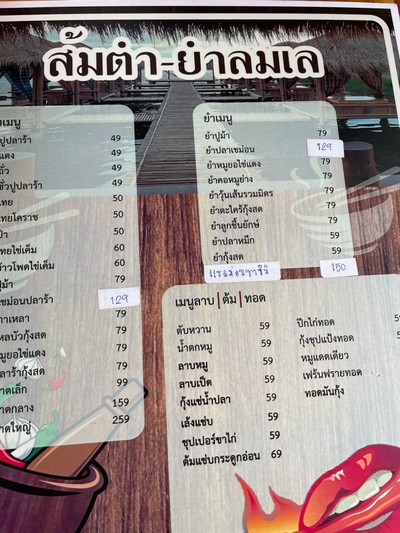 ส้มตำ-ยำลมเล
เมนู
ปูปลาร้า 49
แตง 49
ถั่ว 49
ซั่วปูปลาร้า 49
ไทย 50
ไทยโคราช 50
ป่า 50
ไทยไข่เค็ม 60
ข้าวโพดไข่เค็ม 60
ปูม้า 79
แซม่อนปลาร้า 129
79
หลบัวกุ้งสด 79
หมูยอไข่แดง 79
ปลาร้ากุ้งสด 79
ถาดเล็ก 99
ถาดกลาง 159
ถาดใหญ่ 259
ยำเมนู
ยำปูม้า 79
ยำปลาแซม่อน 129
ยำหมูยอไข่แดง 79
ยำคอหมูย่าง 79
ยำวุ้นเส้นรวมมิตร 79
ยำตะไคร้กุ้งสด 79
ยำลูกชิ้นยักษ์ 79
ยำปลาหมึก 59
ยำกุ้งสด 59
150
เมนูลาบ | ต้ม | ทอด
ตับหวาน 59
น้ำตกหมู 59
ลาบหมู 59
ลาบเป็ด 59
กุ้งแช่น้ำปลา 59
เล้งแซ่บ 59
ซุปเปอร์ขาไก่ 59
ต้มแซ่บกระดูกอ่อน 69
ปีกไก่ทอด
กุ้งชุปแป้งทอด
หมูแดดเดียว
เฟร้นฟรายทอด
ทอดมันกุ้ง